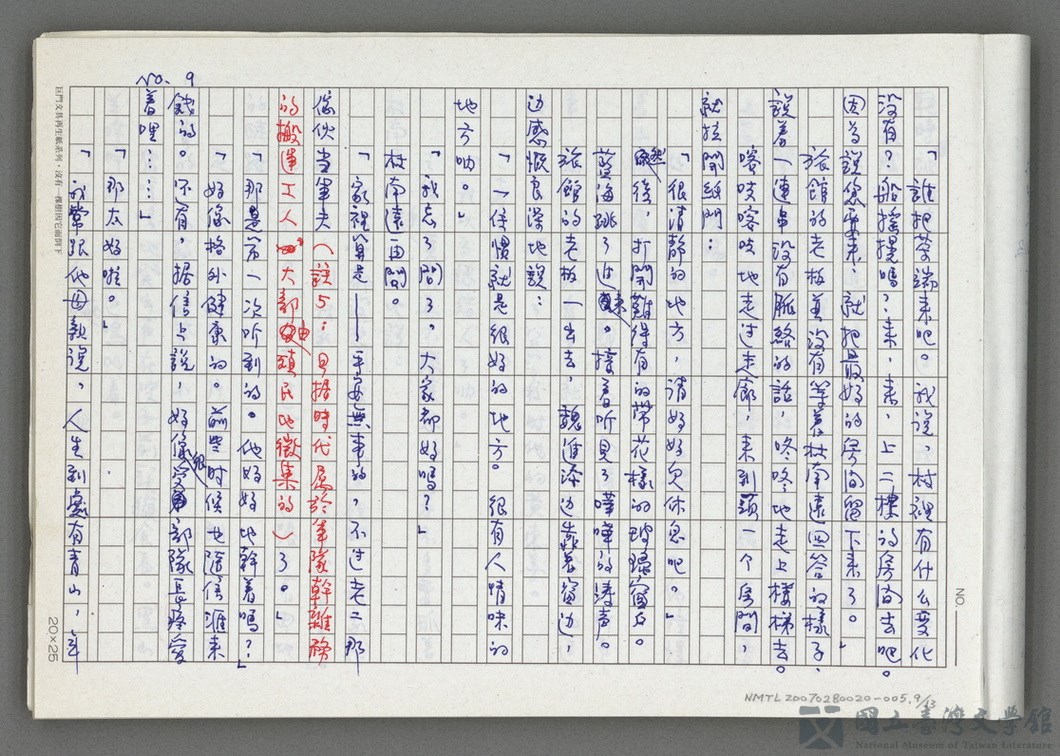 「誰把茶端来吧。我说，村裡有什么变化
没有？船搖摆嗎？来，来，上二楼的房间去吧。
因為說您要来，就把最好的房间留下来了。」
旅館的老板並没有等着林南遠回答的樣子，
説着一連串没有脈絡的話，咚咚地走上樓梯去。
喀吱喀吱地走过走廊，来到頭一个房間，
就拉開紙門：
「很清静的地方，请好好欠休息吧。」
然後，打開難得有的带花樣的玻璃窗戶。
藍海跳了进来。接着听見了嘩嘩的涛声。
旅館的老板一去去，魏進添边靠着窗边，
边感慨良深地説：
「一住慣就是很好的地方。很有人情味的
地方呐。」
「我忘了問了。大家都好嗎？」
林南遠再問。
「家裡算是——平安無事的，不过老二那
傢伙当軍夫（註5：日据時代屬於軍隊幹雜務
的搬運工人，大部由殖民地徵集的）了。」
「那是第一次听到的。他好好地幹着嗎？」
「好像格外健康的。前些时候也随信滙来
錢的。还有，据信上說，好像很受部隊長疼爱
着哩……」
「那太好啦。」
「我常跟他母親说，人生到處有青山，年
NO. 9
NO.
巨門文具再生紙系列·沒有一棵樹因它而倒下
20×25
NMTL20070280020-005.9/13
國立臺灣文學館
National Museum of Taiwan Literature